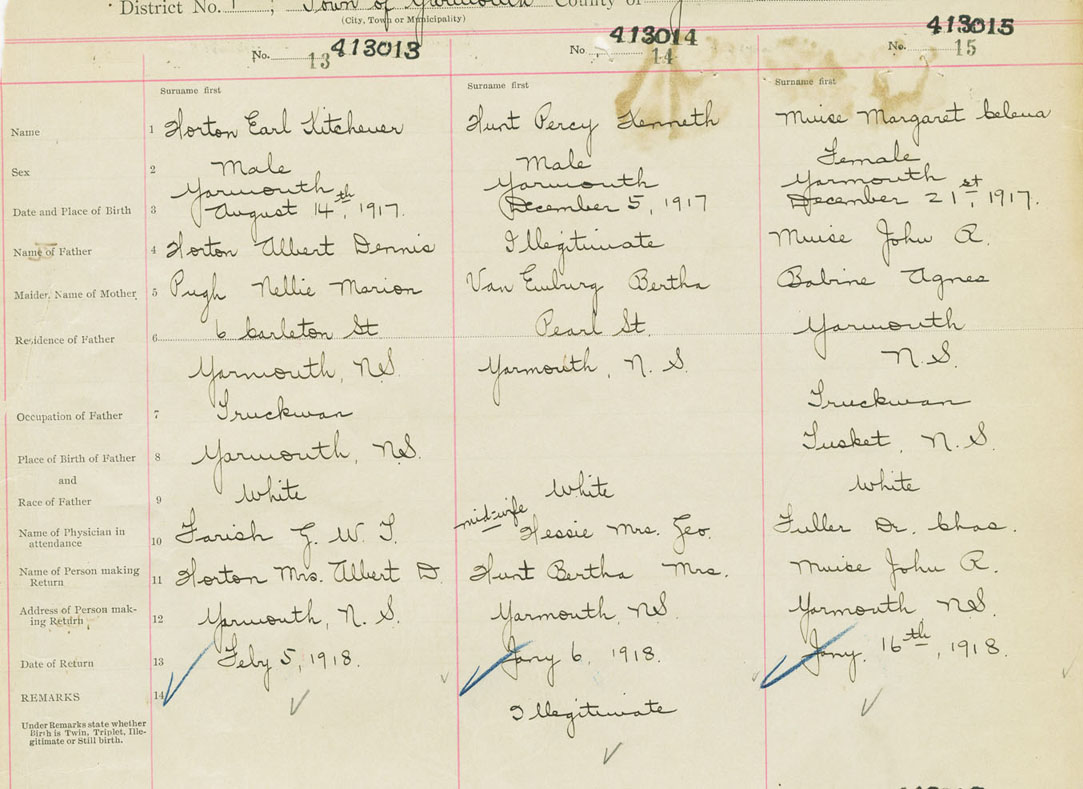 District No. 1 ; Town of Yarmouth County of
(City, Town or Municipality)
No. 13 413013
No 14 413014
No. 15 413015
Surname first
Surname first
Surname first
Name 1 Horton Earl Kitchener
Hunt Percy Kenneth
Muise Margaret Celena
Sex 2 Male
Male
Female
Date and Place of Birth 3 Yarmouth
August 14th, 1917.
Yarmouth
December 5, 1917
Yarmouth
December 21st, 1917.
Name of Father 4 Horton Albert Dennis
Illegitimate
Muise John R.
Maiden Name of Mother 5 Pugh Nellie Marion
Van Emburg Bertha
Babine Agnes
Residence of Father 6 6 Carleton St
Yarmouth, N.S.
Pearl St.
Yarmouth, N. S.
Yarmouth
N. S.
Occupation of Father 7 Truckman
Truckman
Place of Birth of Father 8 Yarmouth, N.S.
Tusket, N. S.
and
Race of Father 9 White
White
White
Name of Physician in
attendance 10 Farish G. W. T.
mid-wife
Hessie Mrs. Geo.
Fuller Dr. Chas.
Name of Person making
Return 11 Horton Mrs. Albert D.
Hunt Bertha Mrs.
Muise John R.
Address of Person mak-
ing Return 12 Yarmouth, N. S.
Yarmouth, N.S.
Yarmouth N.S.
Date of Return 13 Feby 5, 1918.
Jany 6, 1918.
Jany. 16th, 1918.
REMARKS 14
Under Remarks state whether
Birth is Twin, Triplet, Ille-
gitimate or Still birth.
Illegitimate